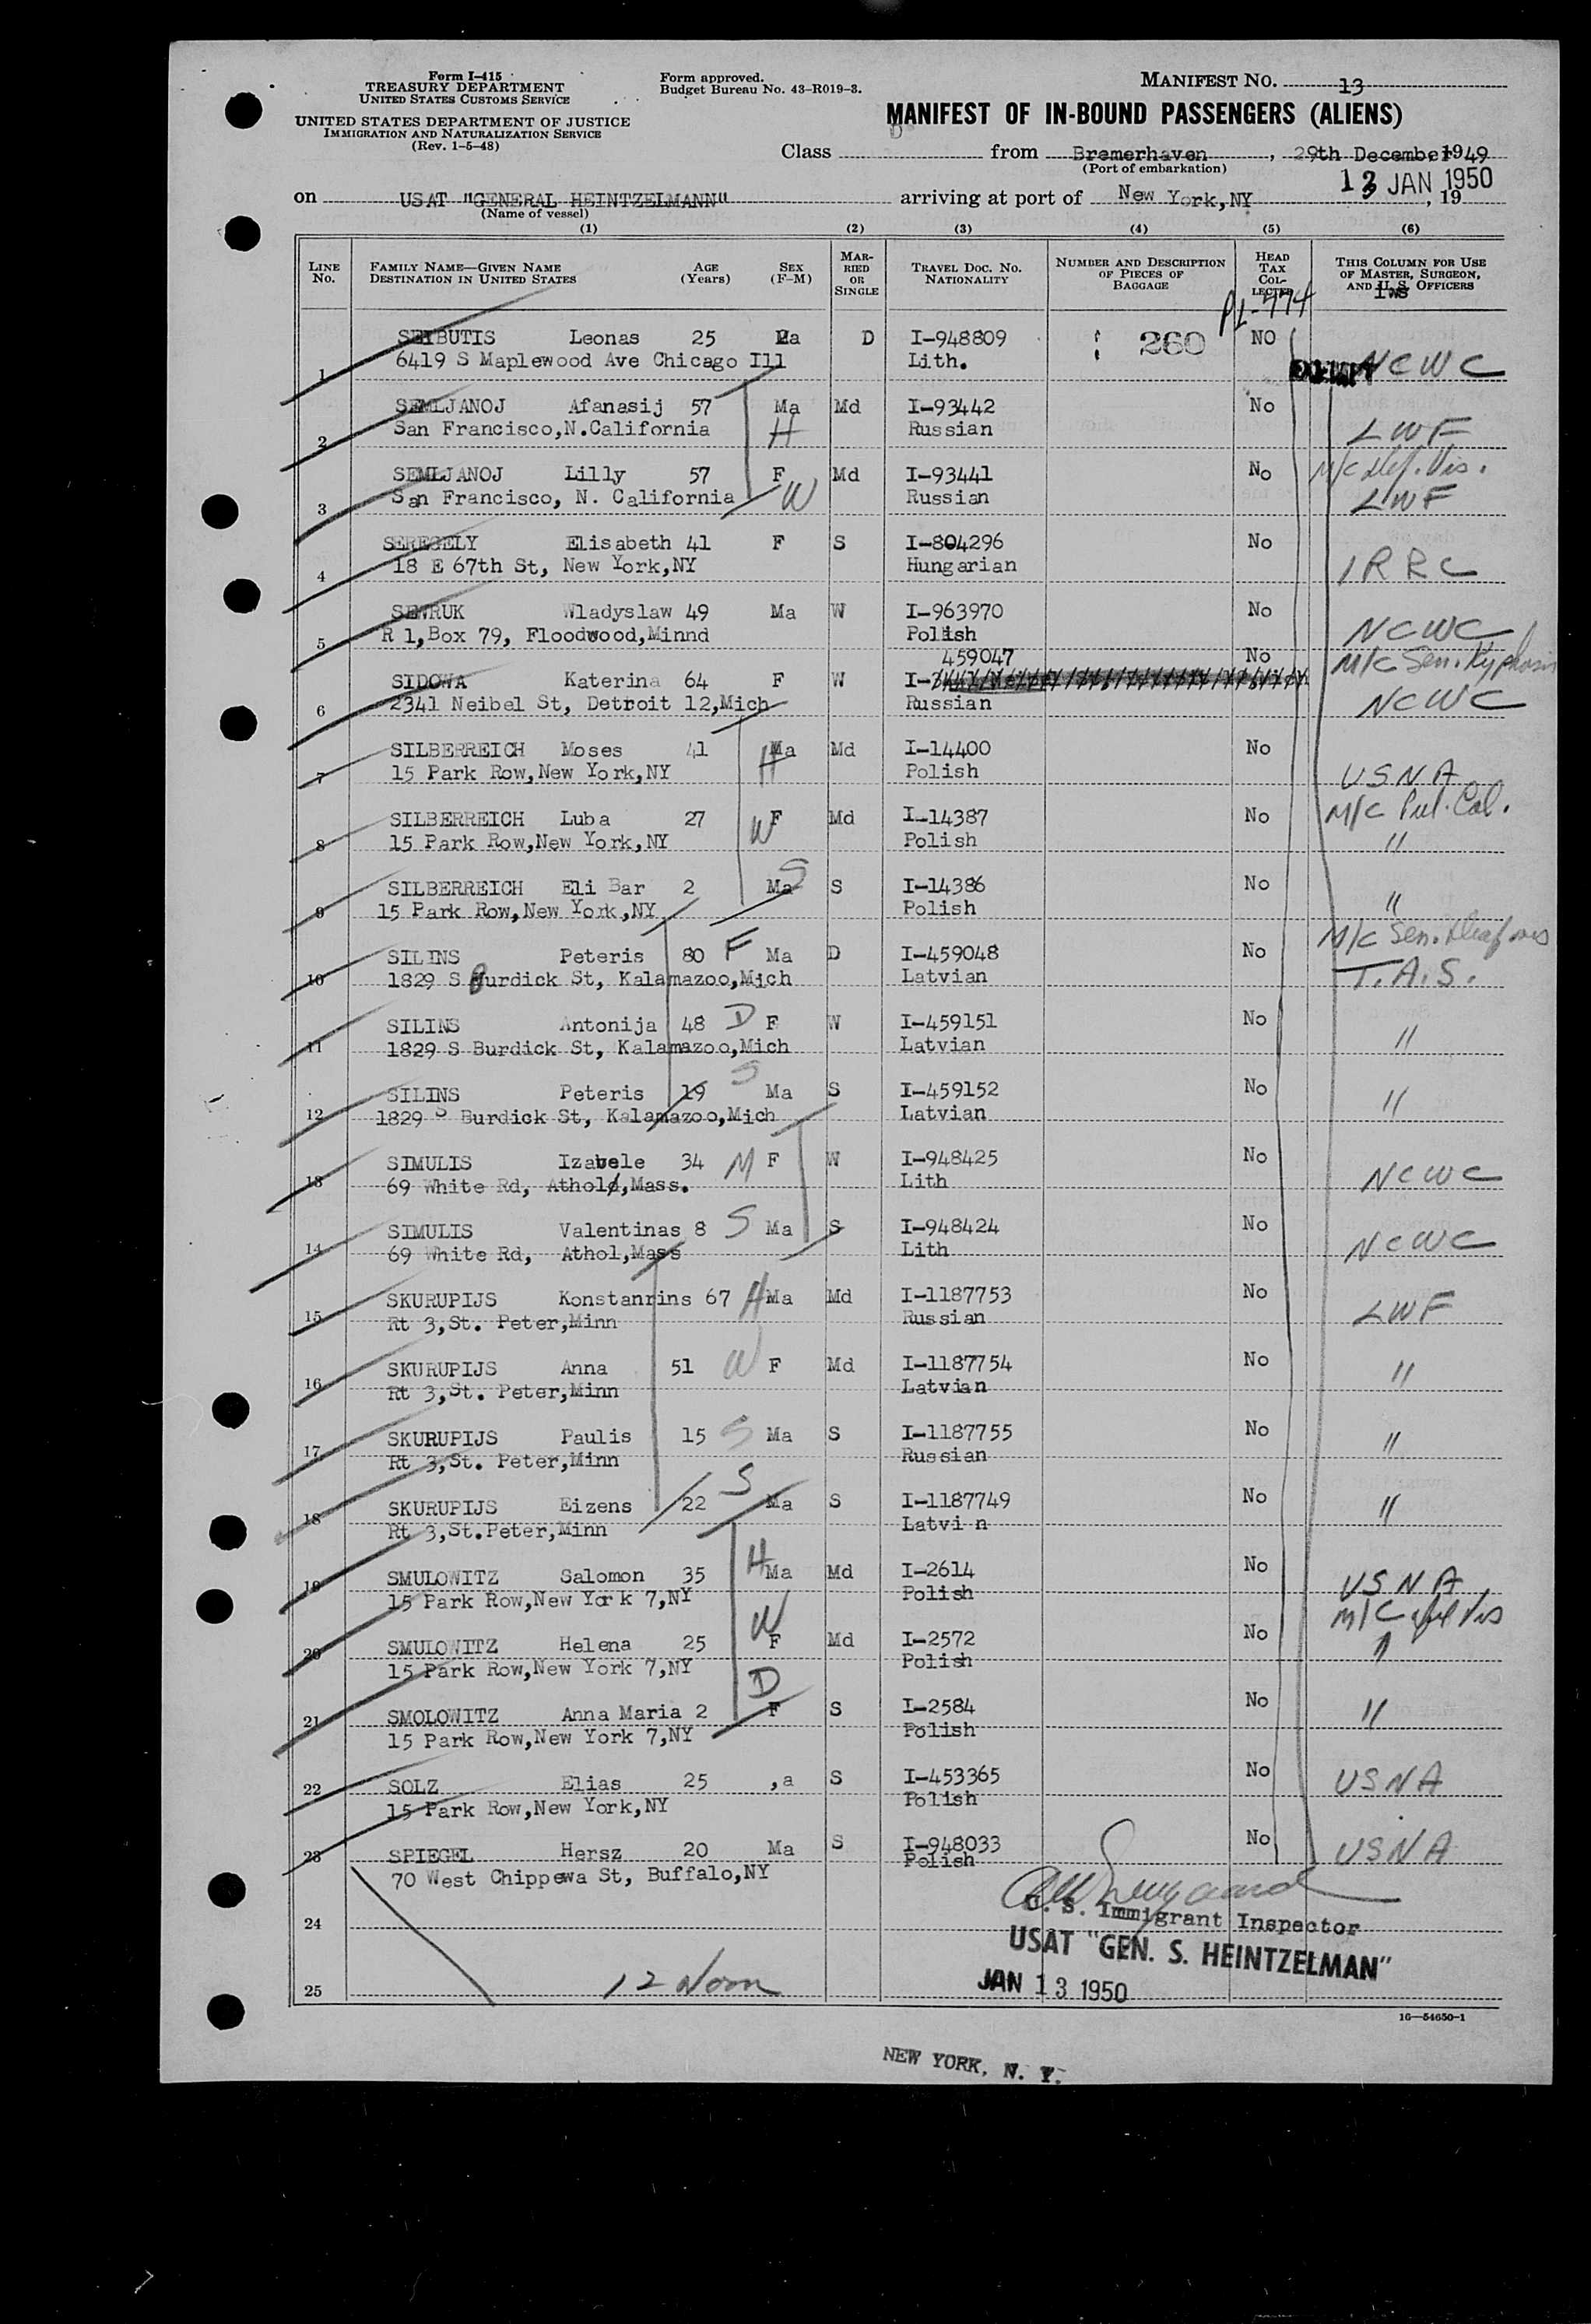 Form I-415
TREASURY DEPARTMENT
UNITED STATES CUSTOMS SERVICE
UNITED STATES DEPARTMENT OF JUSTICE
IMMIGRATION AND NATURALIZATION SERVICE
(Rev. 1-5-48)
Form approved.
Budget Bureau No. 43-R019-3.
MANIFEST NO. 13
MANIFEST OF IN-BOUND PASSENGERS (ALIENS)
Class from Bremerhaven, 29th December 1949
(Port of embarkation)
13 JAN 1950
on USAT "GENERAL HEINTZELMANN" arriving at port of New York,NY, 19
(Name of vessel)
(1) (2) (3) (4) (5) (6)
LINE No. FAMILY NAME—GIVEN NAME DESTINATION IN UNITED STATES AGE (Years) SEX (F-M) MARRIED OR SINGLE TRAVEL DOC. NO. NATIONALITY NUMBER AND DESCRIPTION OF PIECES OF BAGGAGE HEAD TAX COLLECTED THIS COLUMN FOR USE OF MASTER, SURGEON, AND U.S. OFFICERS
PL-774
1 SEIBUTIS Leonas 25 Ma D I-948809 260 NO
6419 S Maplewood Ave Chicago Ill Lith. NCWC
2 SEMLJANOJ Afanasij 57 Ma Md I-93442 No
San Francisco,N.California H Russian LWF
3 SEMLJANOJ Lilly 57 F Md I-93441 No M/C Def. Vis.
San Francisco, N. California W Russian LWF
4 SEREGELY Elisabeth 41 F S I-804296 No
18 E 67th St, New York,NY Hungarian IRRC
5 SENRUK Wladyslaw 49 Ma W I-963970 No
R 1,Box 79, Floodwood,Minnd Polish NCWC
459047 No M/C Sen. Kyphosis
6 SIDOWA Katerina 64 F W I-
2341 Neibel St, Detroit 12,Mich Russian NCWC
7 SILBERREICH Moses 41 H Ma Md I-14400 No
15 Park Row,New York,NY Polish USNA
8 SILBERREICH Luba 27 W F Md I-14387 No M/C Pul. Cal.
15 Park Row,New York,NY Polish "
9 SILBERREICH Eli Bar 2 Ma S S I-14386 No
15 Park Row,New York,NY Polish "
10 SILINS Peteris 80 F Ma D I-459048 No M/C Sen. Deafness
1829 S Burdick St, Kalamazoo,Mich Latvian T.A.S.
11 SILINS Antonija 48 D F W I-459151 No
1829 S Burdick St, Kalamazoo,Mich Latvian "
12 SILINS Peteris 19 S Ma S I-459152 No
1829 S Burdick St, Kalamazoo,Mich Latvian "
13 SIMULIS Izabele 34 M F W I-948425 No
69 White Rd, Athol,Mass. Lith NCWC
14 SIMULIS Valentinas 8 S Ma S I-948424 No
69 White Rd, Athol,Mass Lith NCWC
15 SKURUPIJS Konstanrins 67 H Ma Md I-1187753 No
Rt 3,St. Peter,Minn Russian LWF
16 SKURUPIJS Anna 51 W F Md I-1187754 No
Rt 3,St. Peter,Minn Latvian "
17 SKURUPIJS Paulis 15 S Ma S I-1187755 No
Rt 3,St. Peter,Minn Russian "
18 SKURUPIJS Eizens 22 S Ma S I-1187749 No
Rt 3,St.Peter,Minn Latvi n "
19 SMULOWITZ Salomon 35 H Ma Md I-2614 No
15 Park Row,New York 7,NY Polish USNA
20 SMULOWITZ Helena 25 W F Md I-2572 No M/C Vis
15 Park Row,New York 7,NY Polish "
21 SMOLOWITZ Anna Maria 2 D F S I-2584 No
15 Park Row,New York 7,NY Polish "
22 SOLZ Elias 25 ,a S I-453365 No
15 Park Row,New York,NY Polish USNA
23 SPIEGEL Hersz 20 Ma S I-948033 No
70 West Chippewa St, Buffalo,NY Polish USNA
24
U. S. Immigrant Inspector
USAT "GEN. S. HEINTZELMAN"
25 12 Noon JAN 13 1950
16—54650-1
NEW YORK, N. Y.